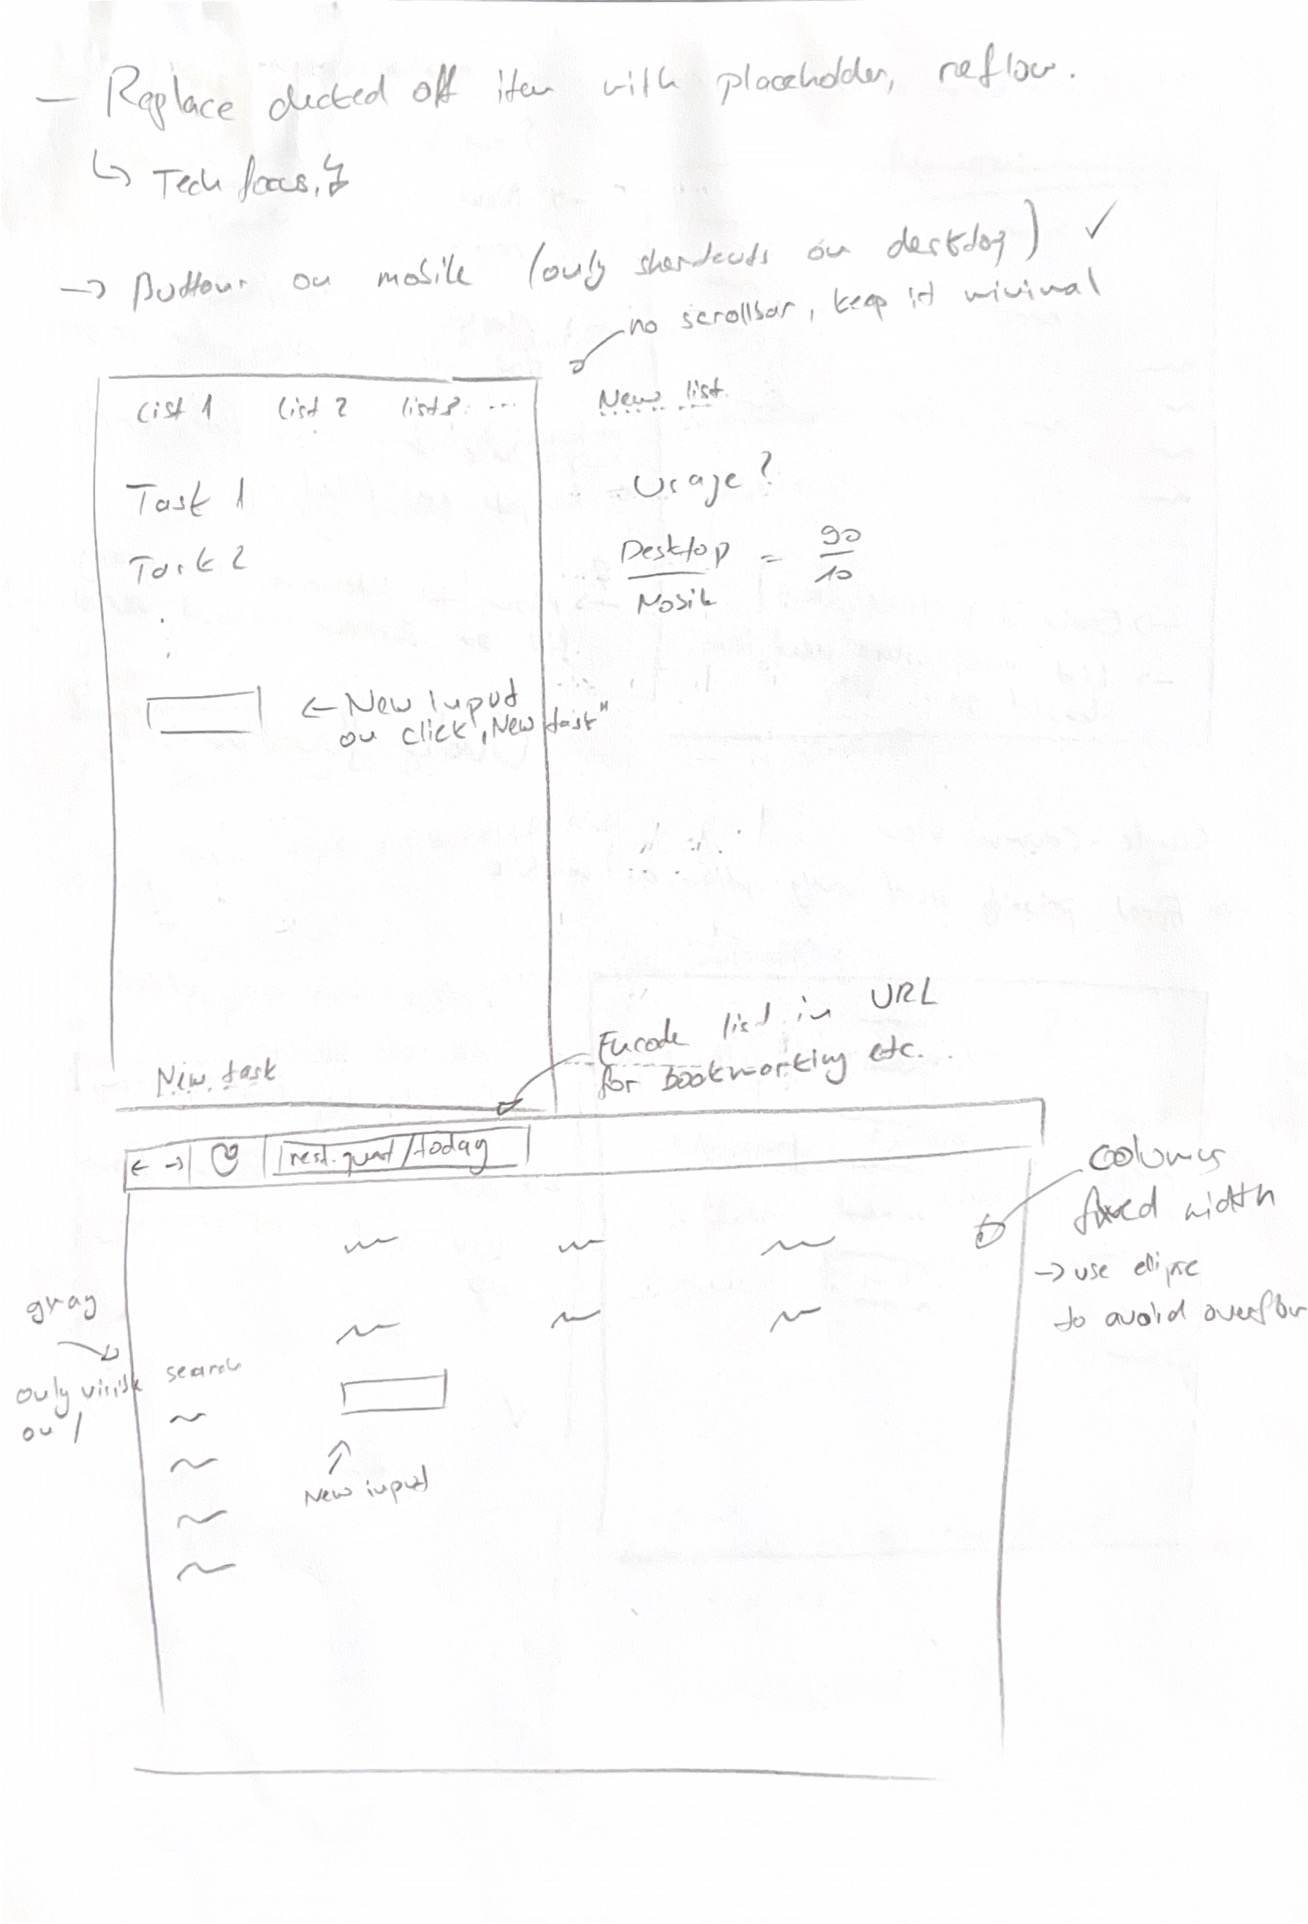 - Replace checked off item with placeholder, reflow.
↳ Tech focus,
→ Buttons on mobile (only shortcuts on desktop) ✓
no scrollbar, keep it minimal
List 1 List 2 list 3 ...
New list
Task 1
Task 2
Usage?
Desktop / Mobile = 90 / 10
← New input
on click „New task"
New task
Encode list in URL
for bookmarking etc.
← →
/today
Columns
fixed width
→ use elipse
to avoid overflow
gray
only visible
on /
search
New input